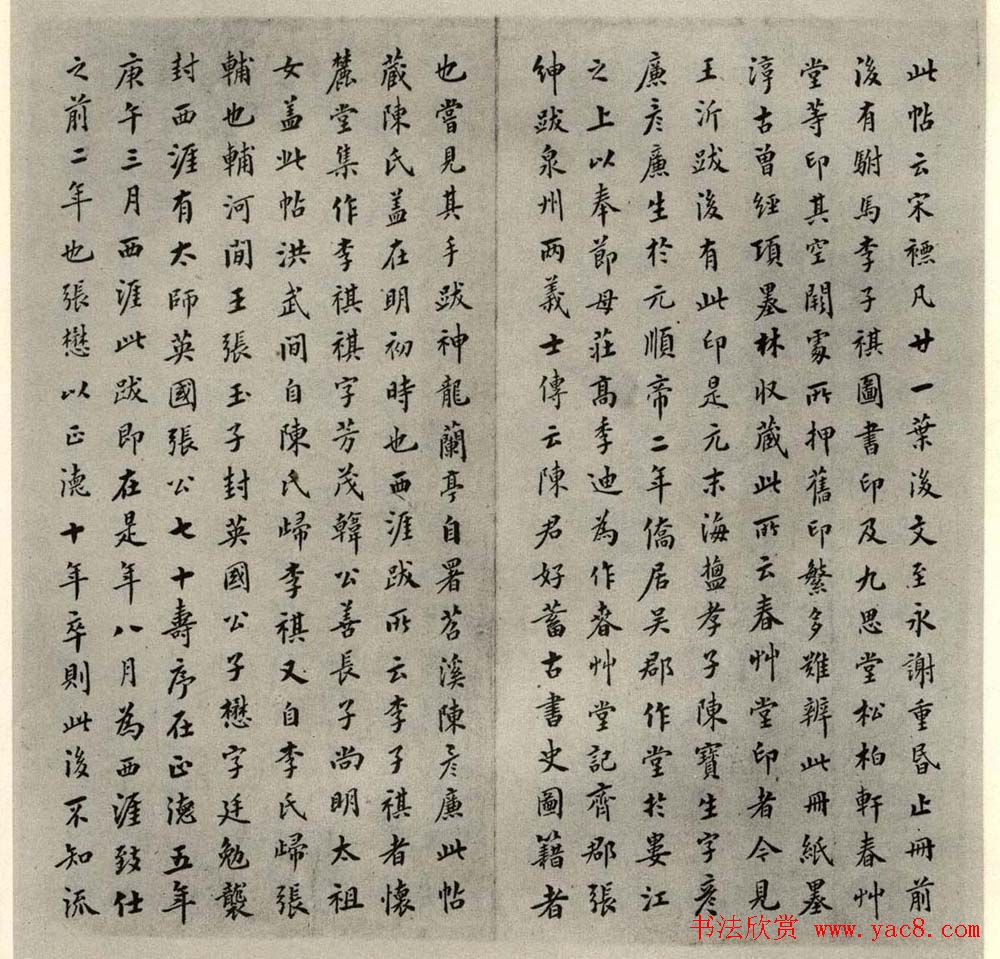 此帖云宋裱凡廿一葉後文至永謝重昏止冊前
後有駙馬李子祺圖書印及九思堂松柏軒春艸
堂等印其空闕處所押舊印繁多難辨此冊紙墨
淳古曾經項墨林収藏此所云春艸堂印者今見
王沂跋後有此印是元末海鹽孝子陳寶生字彥
廉彥廉生於元順帝二年僑居吴郡作堂於婁江
之上以奉節母莊髙季迪為作春艸堂記齊郡張
紳跋泉州兩義士傳云陳君好蓄古書史圖籍者
也嘗見其手跋神龍蘭亭自署苕溪陳彥廉此帖
藏陳氏盖在明初時也西涯跋所云李子祺者懷
麓堂集作李祺祺字芳茂韓公善長子尚明太祖
女盖此帖洪武间自陳氏歸李祺又自李氏歸張
輔也輔河间王張玉子封英國公子懋字廷勉襲
封西涯有太師英國張公七十壽序在正德五年
庚午三月西涯此跋即在是年八月為西涯致仕
之前二年也張懋以正德十年卒則此後不知流
书法欣赏 www.yac8.com